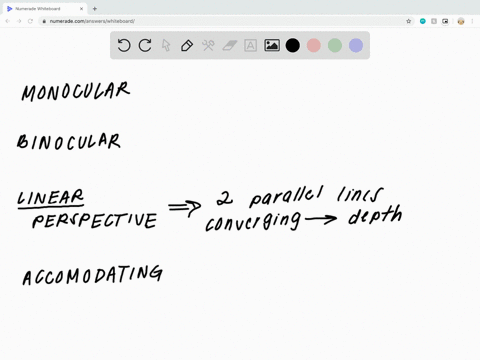 Numerade Whiteboard
numerade.com/answers/whiteboard/
MONOCULAR
BINOCULAR
LINEAR
PERSPECTIVE ⇒ 2 parallel lines
converging → depth
ACCOMODATING